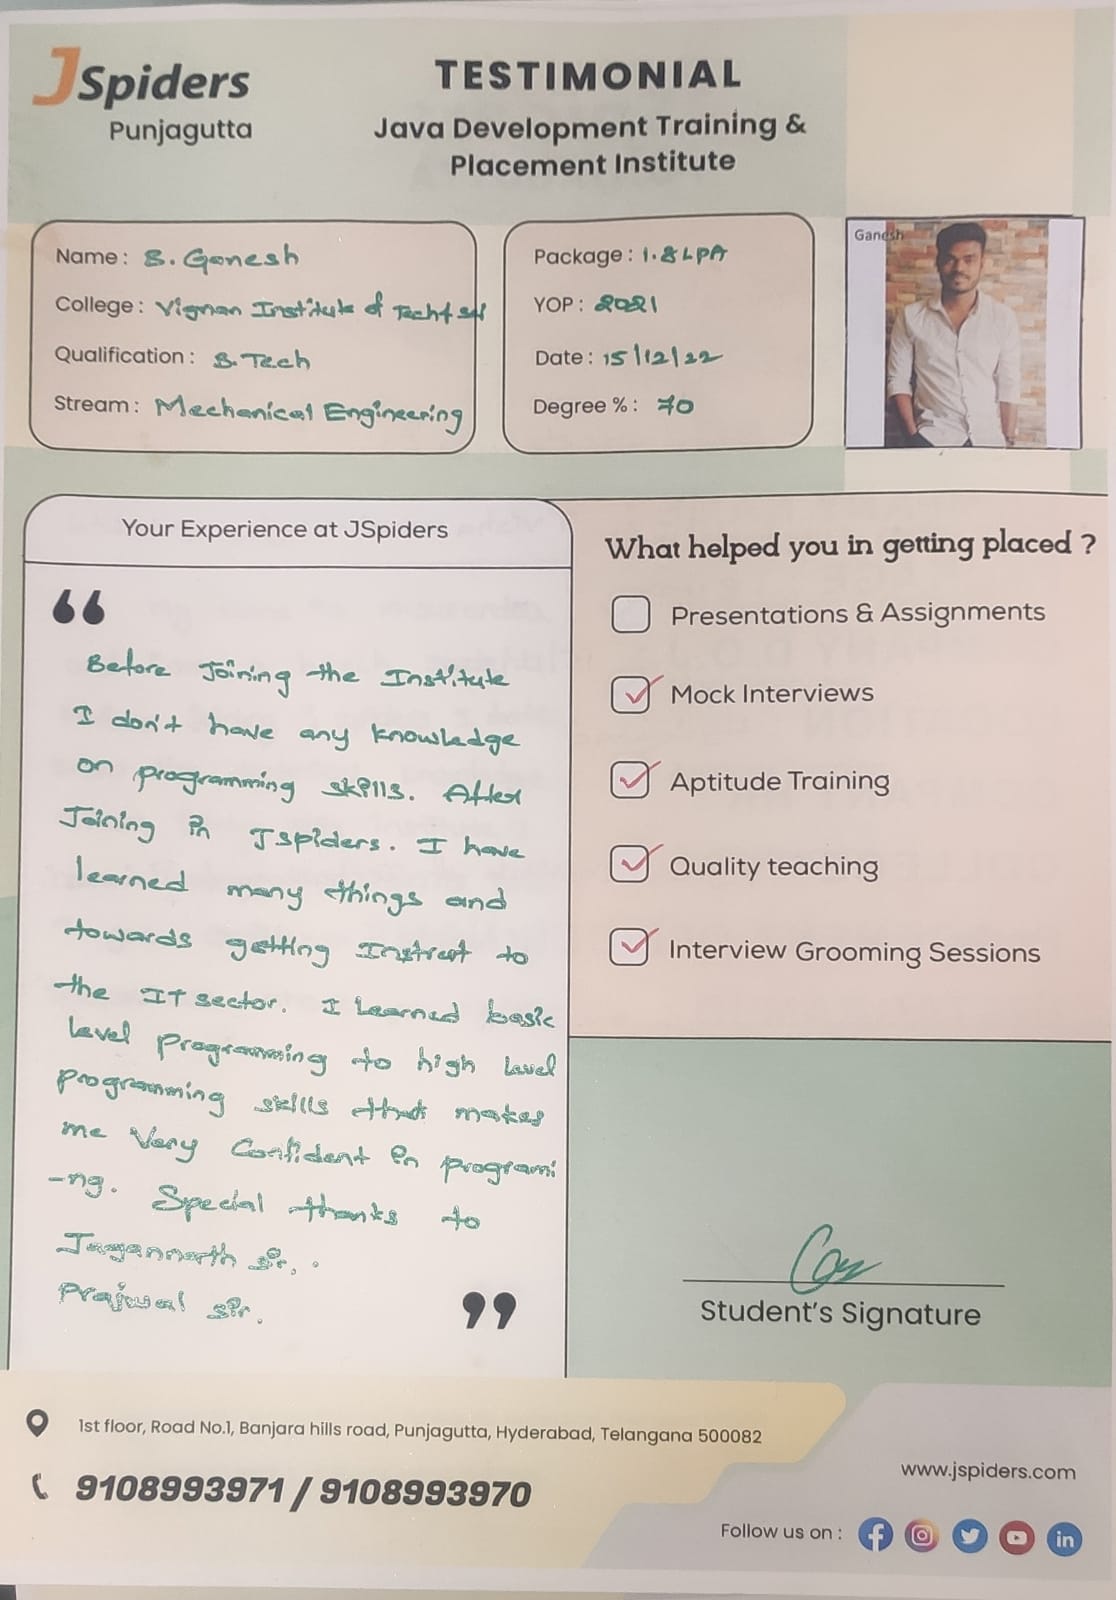 JSpiders
Punjagutta
TESTIMONIAL
Java Development Training &
Placement Institute
Name : B. Ganesh
College : Vignan Institute of Tech & Sci
Qualification : B. Tech
Stream : Mechanical Engineering
Package : 1.8 LPA
YOP : 2021
Date : 15/12/22
Degree % : 70
Ganesh
Your Experience at JSpiders
“
Before Joining the Institute
I don't have any knowledge
on programming skills. After
Joining in Jspiders. I have
learned many things and
towards getting Instrest to
the IT sector. I Learned basic
level programming to high level
programming skills that makes
me Very Confident in programi
-ng. Special thanks to
Jagannath sir, .
Prajwal sir.
”
What helped you in getting placed ?
Presentations & Assignments
Mock Interviews
Aptitude Training
Quality teaching
Interview Grooming Sessions
Student's Signature
1st floor, Road No.1, Banjara hills road, Punjagutta, Hyderabad, Telangana 500082
9108993971 / 9108993970
www.jspiders.com
Follow us on :